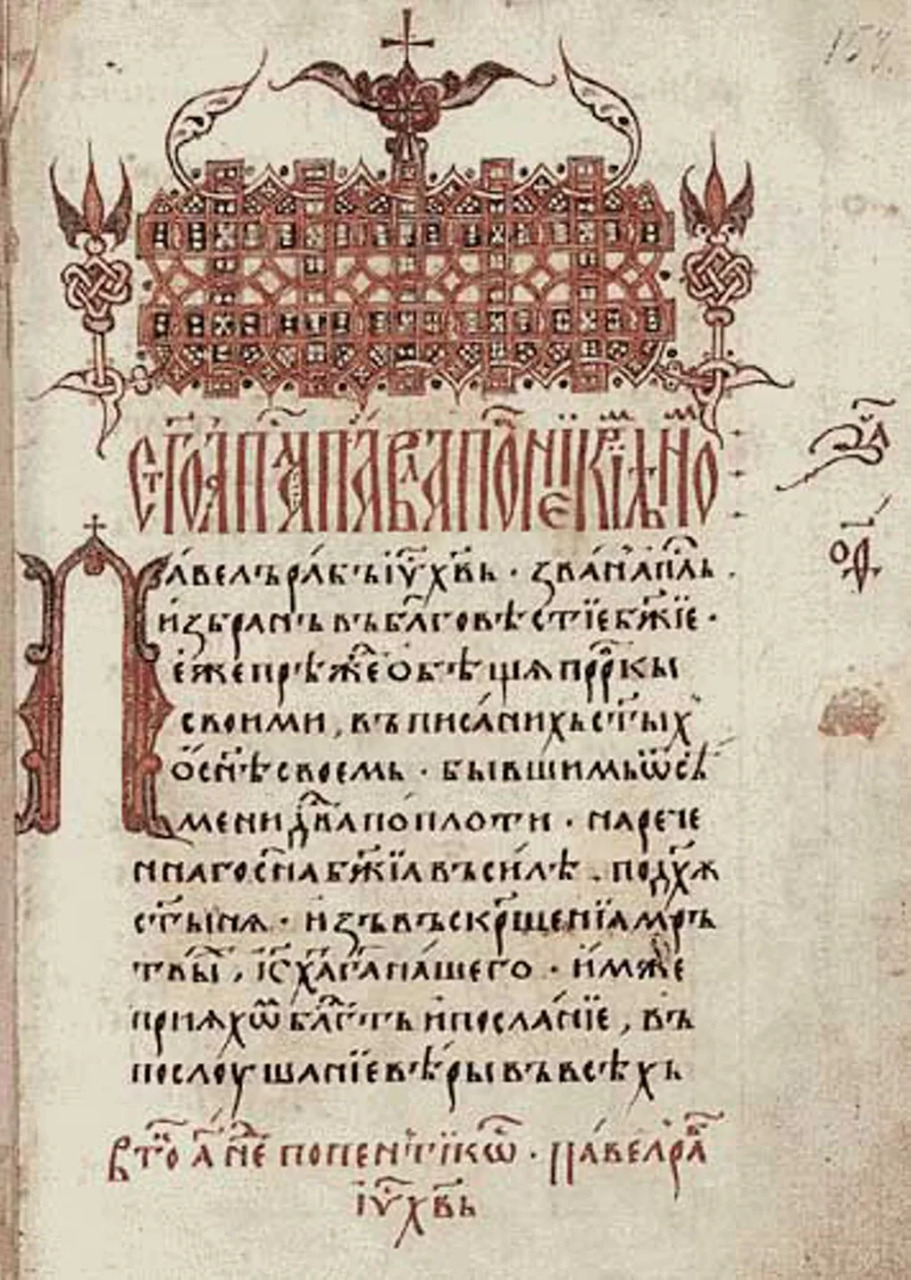 153
Павелъ рабъ іу҃ хв҃ь · зва́нъ ап҃ль ·
и҆збранъ въ бл҃говѣстїе бж҃їе ·
е҆же прѣж҃е ѡ҆бѣща прⷪ҇ркы
своими, въ писа́нихъ ст҃ых
о҆ сн҃ѣ своемь · бывшимь ѿ сѣ
мени дв҃а по плоти · нарече
ннаго сн҃а бж҃їа въ силѣ . по дх҃ѫ
ст҃ынѧ · и҆зъ въскрⷭ҇щенїа мр҃ъ
твы, іс҃ х҃а г҃а нашего · и҆мже
прияхѡⷨ бл҃гть и посла́нїе, въ
послоушанїе вѣ́ры въ всѣхь
в то а҃ не по пентикѡ · Павел ра
іу҃ хв҃ь